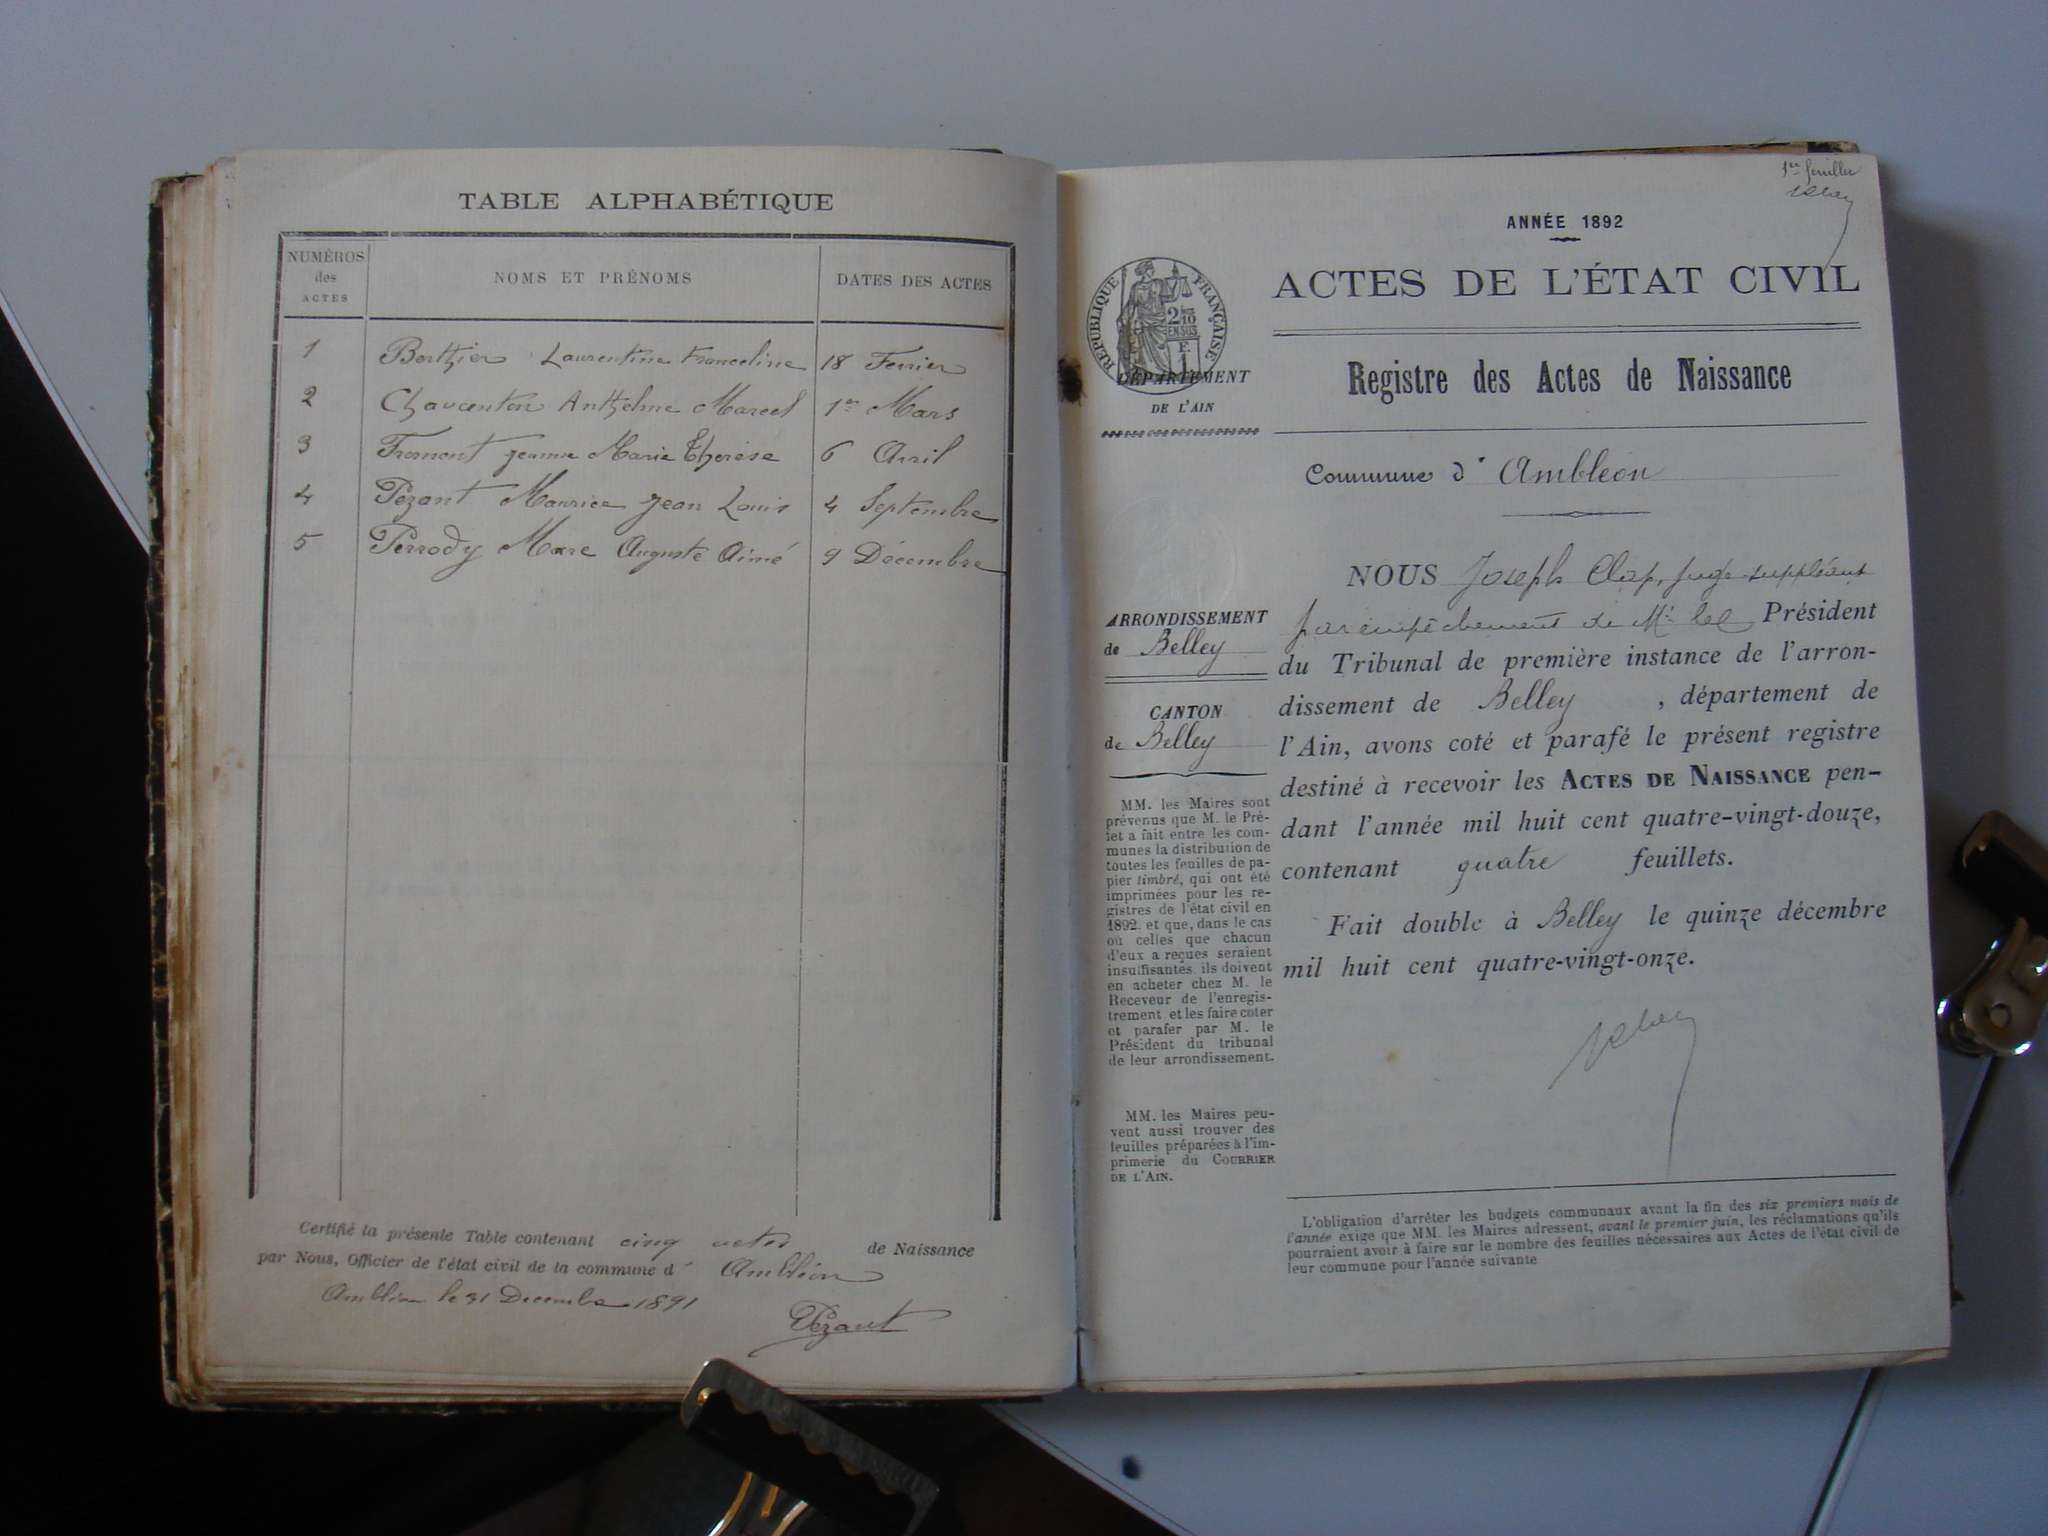 TABLE ALPHABÉTIQUE
NUMÉROS des ACTES
NOMS ET PRÉNOMS
DATES DES ACTES
1 Berthier Laurentine Franceline 18 Fevrier
2 Chavanton Anthelme Marcel 1er Mars
3 Fromont Jeanne Marie Thérèse 6 Avril
4 Pézant Maurice Jean Louis 4 Septembre
5 Perrody Marc Auguste Aimé 9 Décembre
Certifié la présente Table contenant cinq actes de Naissance
par Nous, Officier de l'état civil de la commune d' Ambléon
Ambléon le 31 Decembre 1891
Pézant
1er feuillet
ANNÉE 1892
ACTES DE L'ÉTAT CIVIL
RÉPUBLIQUE FRANÇAISE
2/10 EN SUS
F. 1
DÉPARTEMENT
DE L'AIN
Registre des Actes de Naissance
Commune d' Ambléon
ARRONDISSEMENT
de Belley
CANTON
de Belley
MM. les Maires sont
prévenus que M. le Pré-
fet a fait entre les com-
munes la distribution de
toutes les feuilles de pa-
pier timbré, qui ont été
imprimées pour les re-
gistres de l'état civil en
1892. et que, dans le cas
où celles que chacun
d'eux a reçues seraient
insuffisantes, ils doivent
en acheter chez M. le
Receveur de l'enregis-
trement et les faire coter
et parafer par M. le
Président du tribunal
de leur arrondissement.
MM. les Maires peu-
vent aussi trouver des
feuilles préparées à l'im-
primerie du COURRIER
DE L'AIN.
NOUS Joseph Clap, juge suppléant
par empêchement de Mr le Président
du Tribunal de première instance de l'arron-
dissement de Belley , département de
l'Ain, avons coté et parafé le présent registre
destiné à recevoir les ACTES DE NAISSANCE pen-
dant l'année mil huit cent quatre-vingt-douze,
contenant quatre feuillets.
Fait double à Belley le quinze décembre
mil huit cent quatre-vingt-onze.
L'obligation d'arrêter les budgets communaux avant la fin des six premiers mois de
l'année exige que MM. les Maires adressent, avant le premier juin, les réclamations qu'ils
pourraient avoir à faire sur le nombre des feuilles nécessaires aux Actes de l'état civil de
leur commune pour l'année suivante